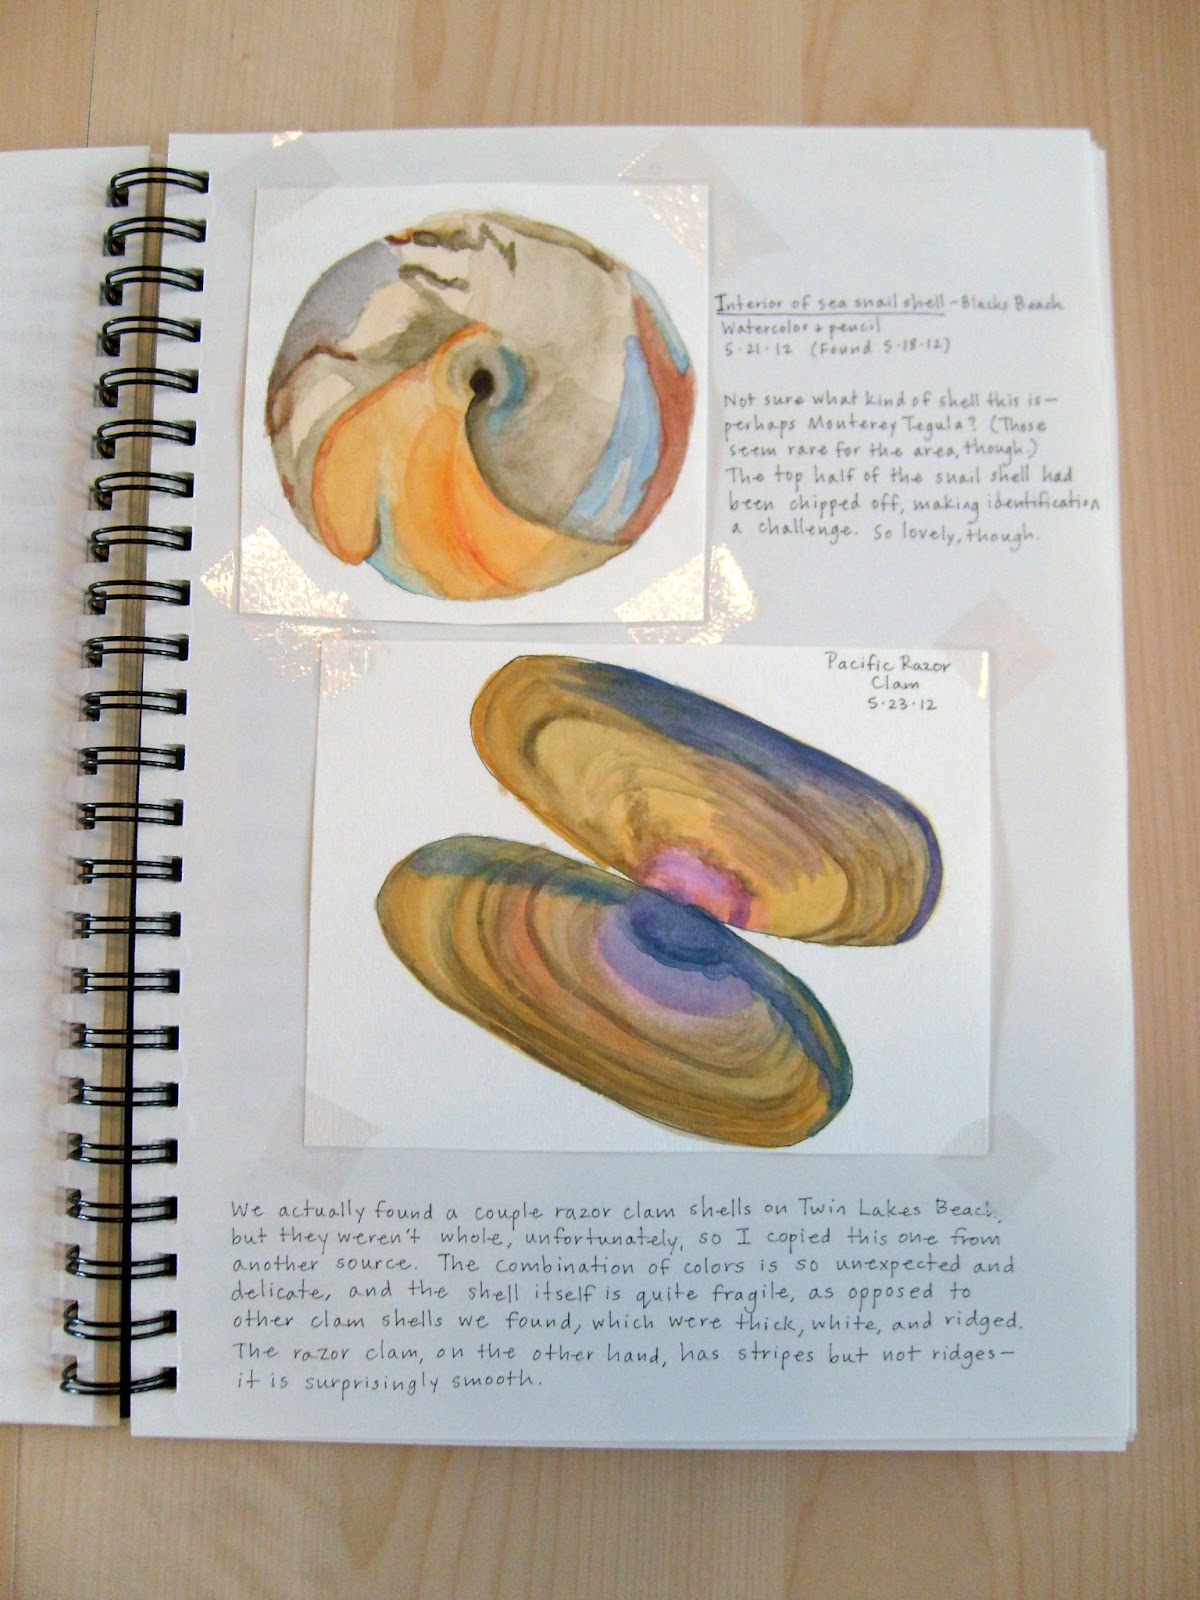 Interior of sea snail shell - Blacks Beach
Watercolor + pencil
5·21·12 (Found 5·18·12)
Not sure what kind of shell this is—
perhaps Monterey Tegula? (Those
seem rare for the area, though.)
The top half of the snail shell had
been chipped off, making identification
a challenge. So lovely, though.
Pacific Razor
Clam
5·23·12
We actually found a couple razor clam shells on Twin Lakes Beach,
but they weren't whole, unfortunately, so I copied this one from
another source. The combination of colors is so unexpected and
delicate, and the shell itself is quite fragile, as opposed to
other clam shells we found, which were thick, white, and ridged.
The razor clam, on the other hand, has stripes but not ridges—
it is surprisingly smooth.